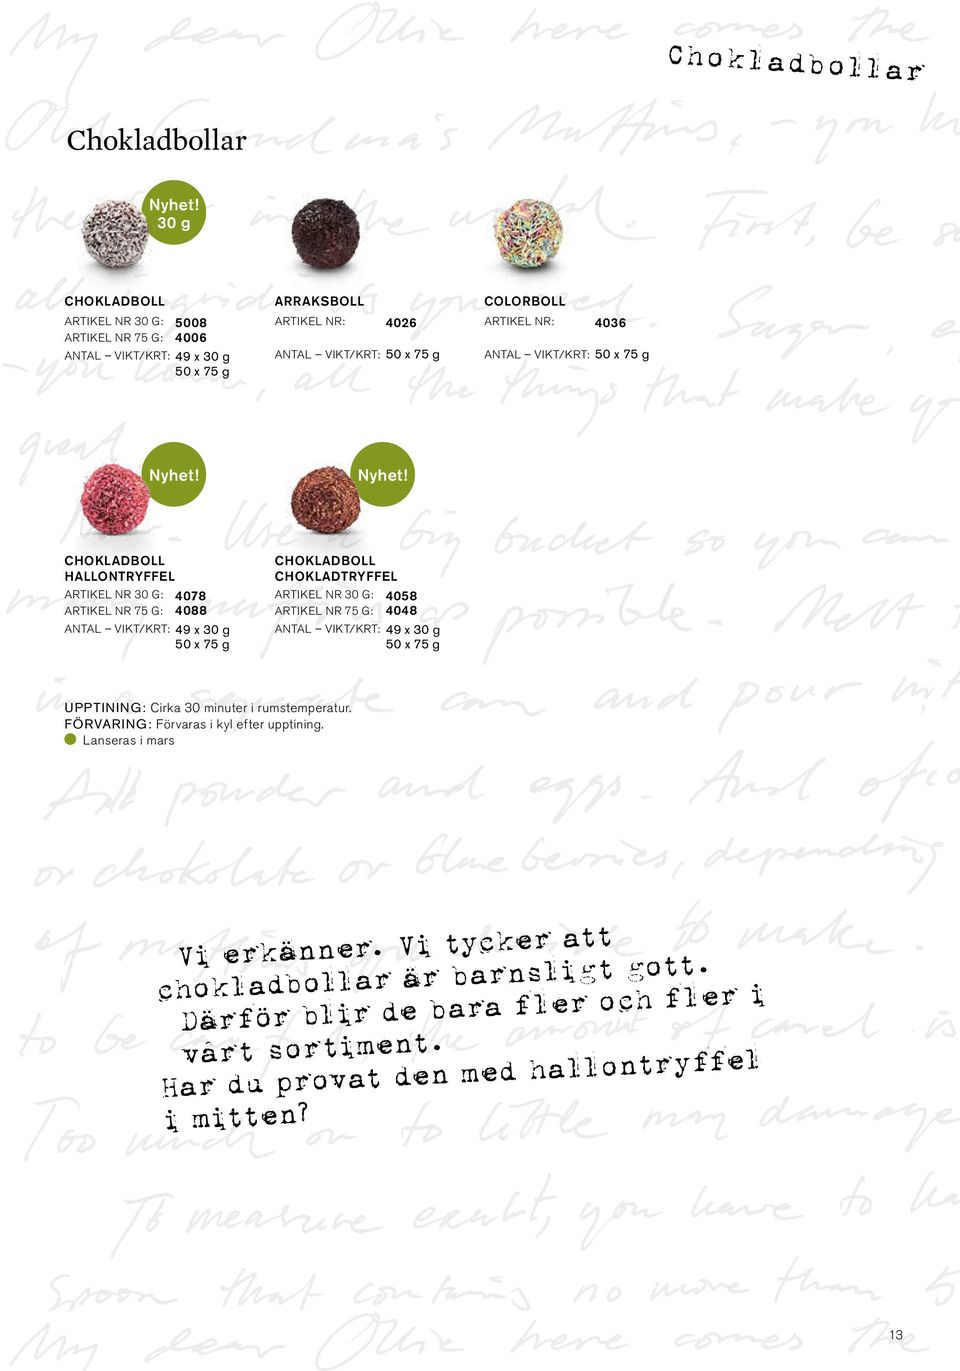 Chokladbollar
Chokladbollar
Nyhet!
30 g
CHOKLADBOLL
ARTIKEL NR 30 G: 5008
ARTIKEL NR 75 G: 4006
ANTAL – VIKT/KRT: 49 x 30 g
50 x 75 g
ARRAKSBOLL
ARTIKEL NR: 4026
ANTAL – VIKT/KRT: 50 x 75 g
COLORBOLL
ARTIKEL NR: 4036
ANTAL – VIKT/KRT: 50 x 75 g
Nyhet!
CHOKLADBOLL
HALLONTRYFFEL
ARTIKEL NR 30 G: 4078
ARTIKEL NR 75 G: 4088
ANTAL – VIKT/KRT: 49 x 30 g
50 x 75 g
Nyhet!
CHOKLADBOLL
CHOKLADTRYFFEL
ARTIKEL NR 30 G: 4058
ARTIKEL NR 75 G: 4048
ANTAL – VIKT/KRT: 49 x 30 g
50 x 75 g
UPPTINING: Cirka 30 minuter i rumstemperatur.
FÖRVARING: Förvaras i kyl efter upptining.
Lanseras i mars
Vi erkänner. Vi tycker att
chokladbollar är barnsligt gott.
Därför blir de bara fler och fler i
vårt sortiment.
Har du provat den med hallontryffel
i mitten?
13
My dear Ollie here comes the
Old Grandma's Muffins, – you
the in the world. First, be
all ingridients you need. Sugar,
– you know, all the things that make
great
Use a big bucket so you can
as possible. Melt
in a separate can and pour
All powder and eggs. And
or chokolate or blueberries, depending
of muffins to make.
to be amount of is
Too much or to little may damage
To measure exakt, you have to
Spoon that contains no more than 5
My dear Ollie here comes the